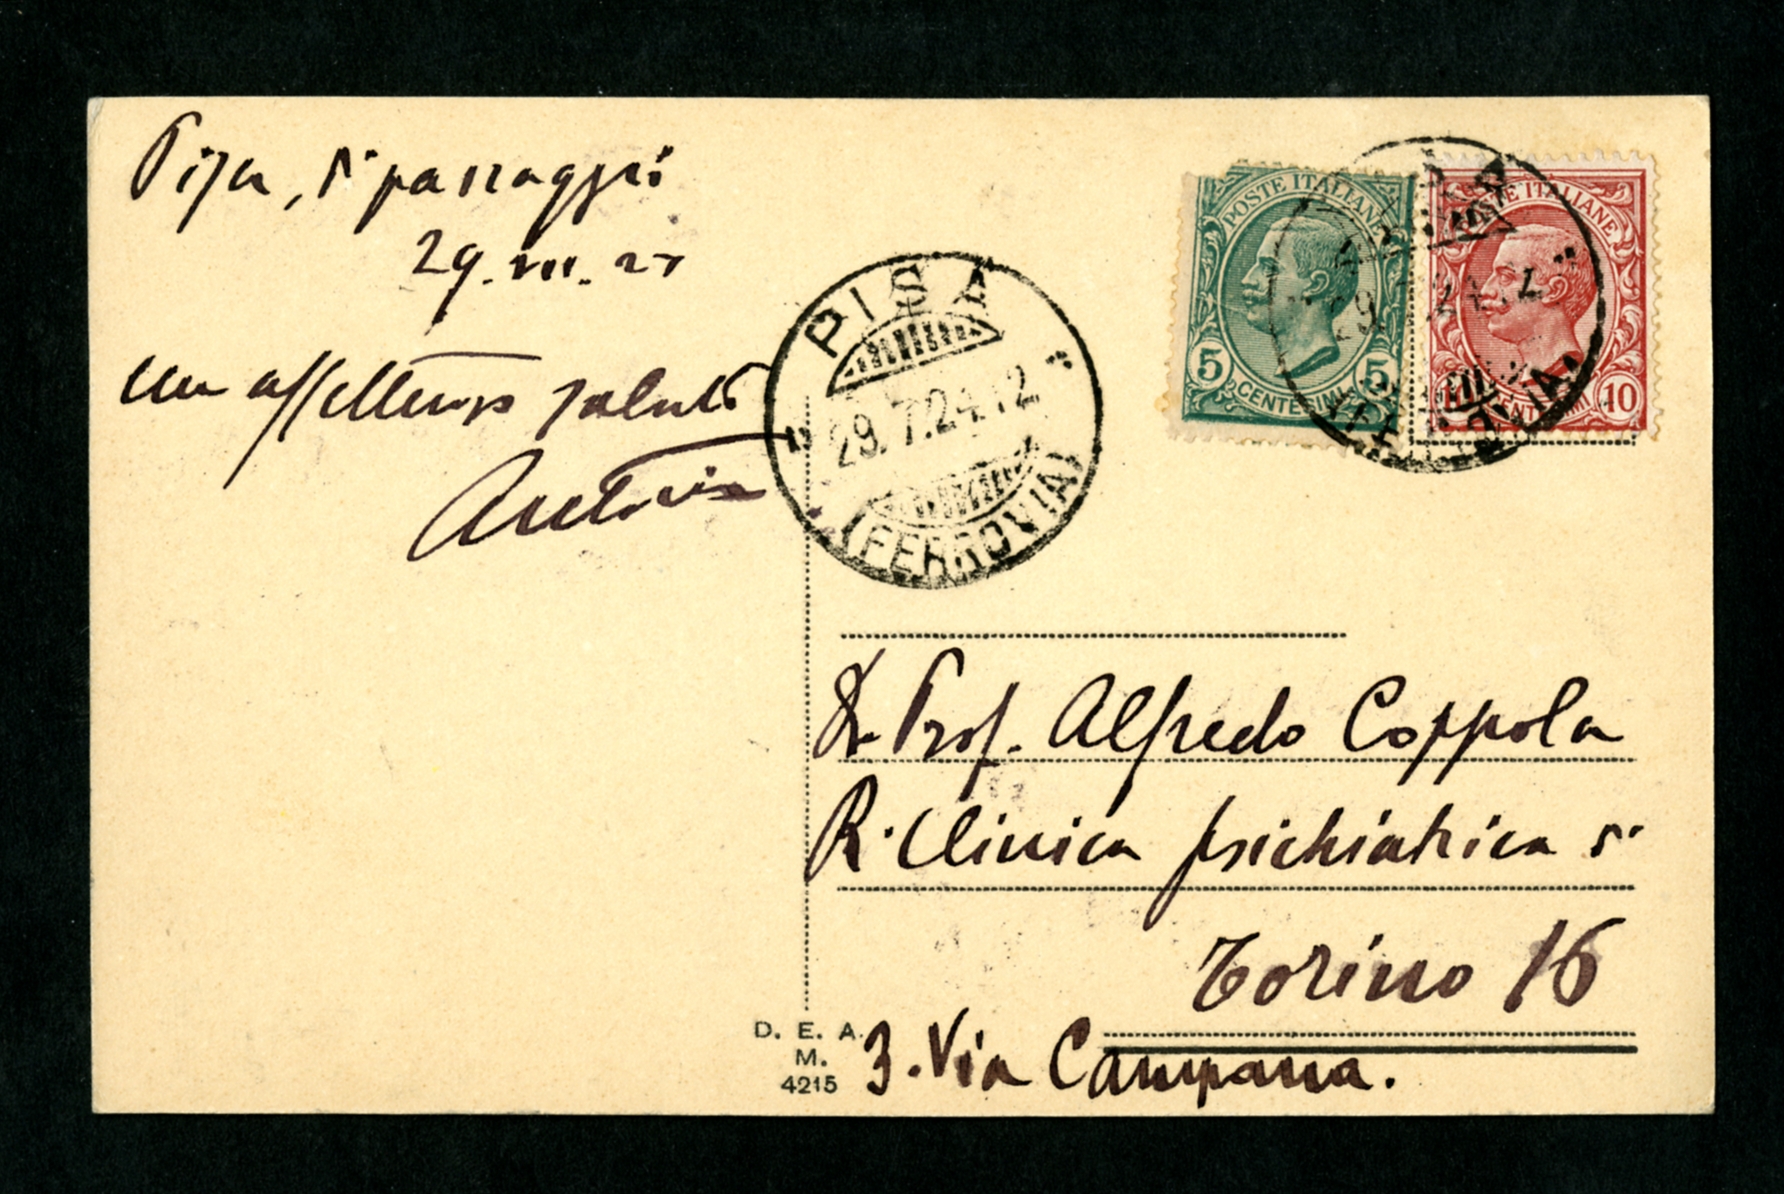 Pisa, di passaggio
29.VII.24
un affettuoso saluto
PISA
29.7.24.12
(FERROVIA)
POSTE ITALIANE
5 5
CENTESIMI
POSTE ITALIANE
10
CENTESIMI
Dr. Prof. Alfredo Coppola
R. Clinica psichiatrica di
Torino 16
3. Via Campana.
D. E. A.
M.
4215